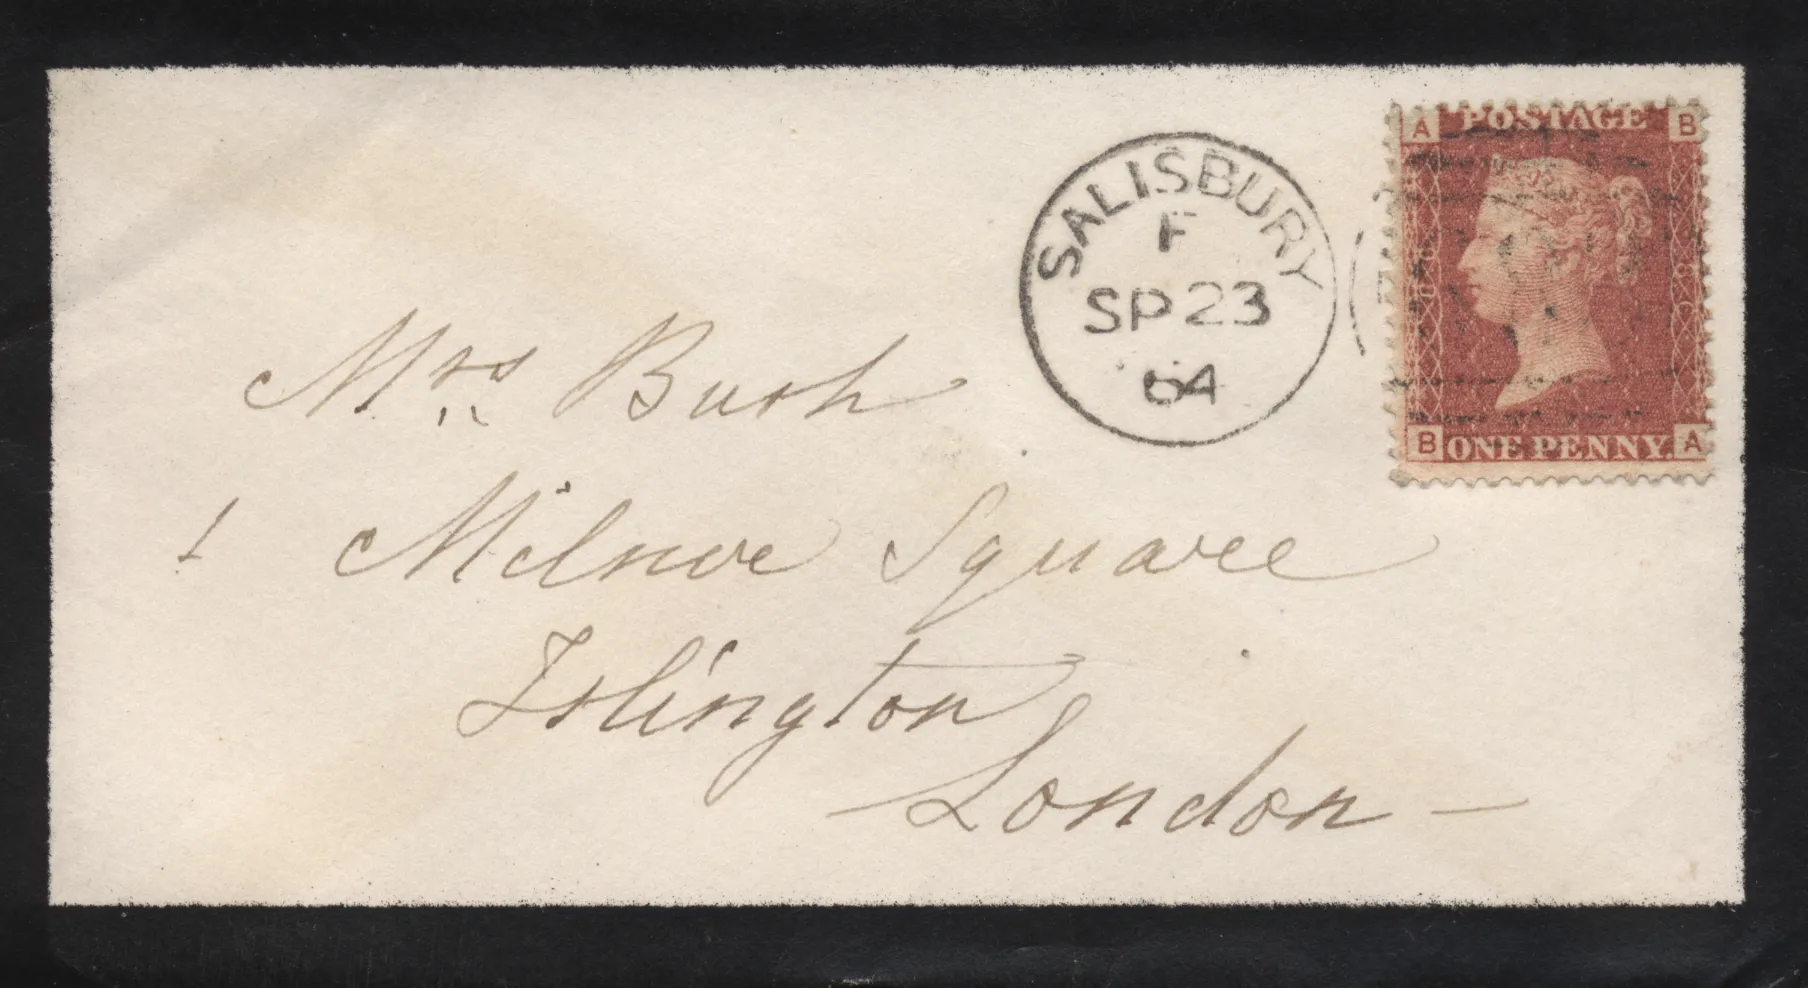 A POSTAGE B
SALISBURY
F
SP 23
64
B ONE PENNY. A
Mrs Bush
1 Milner Square
Islington
London